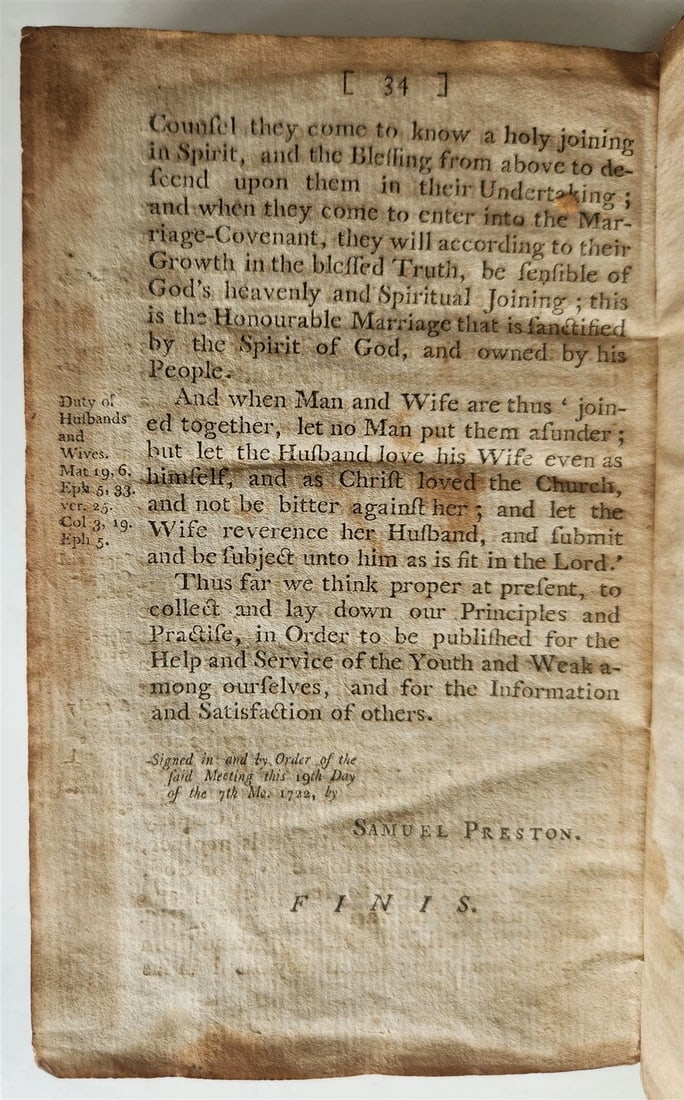 [ 34 ]
Counſel they come to know a holy joining
in Spirit, and the Bleſſing from above to de-
ſcend upon them in their Undertaking ;
and when they come to enter into the Mar-
riage-Covenant, they will according to their
Growth in the bleſſed Truth, be ſenſible of
God's heavenly and Spiritual Joining ; this
is the Honourable Marriage that is ſanctified
by the Spirit of God, and owned by his
People.
Duty of
Huſbands
and
Wives.
Mat 19, 6.
Eph 5, 33.
ver. 25.
Col 3, 19.
Eph 5.
And when Man and Wife are thus ‘ join-
ed together, let no Man put them aſunder ;
but let the Huſband love his Wife even as
himſelf, and as Chriſt loved the Church,
and not be bitter againſt her ; and let the
Wife reverence her Huſband, and ſubmit
and be ſubject unto him as is fit in the Lord.’
Thus far we think proper at preſent, to
collect and lay down our Principles and
Practiſe, in Order to be publiſhed for the
Help and Service of the Youth and Weak a-
mong ourſelves, and for the Information
and Satisfaction of others.
Signed in and by Order of the
ſaid Meeting this 19th Day
of the 7th Mo. 1722, by
SAMUEL PRESTON.
F I N I S.